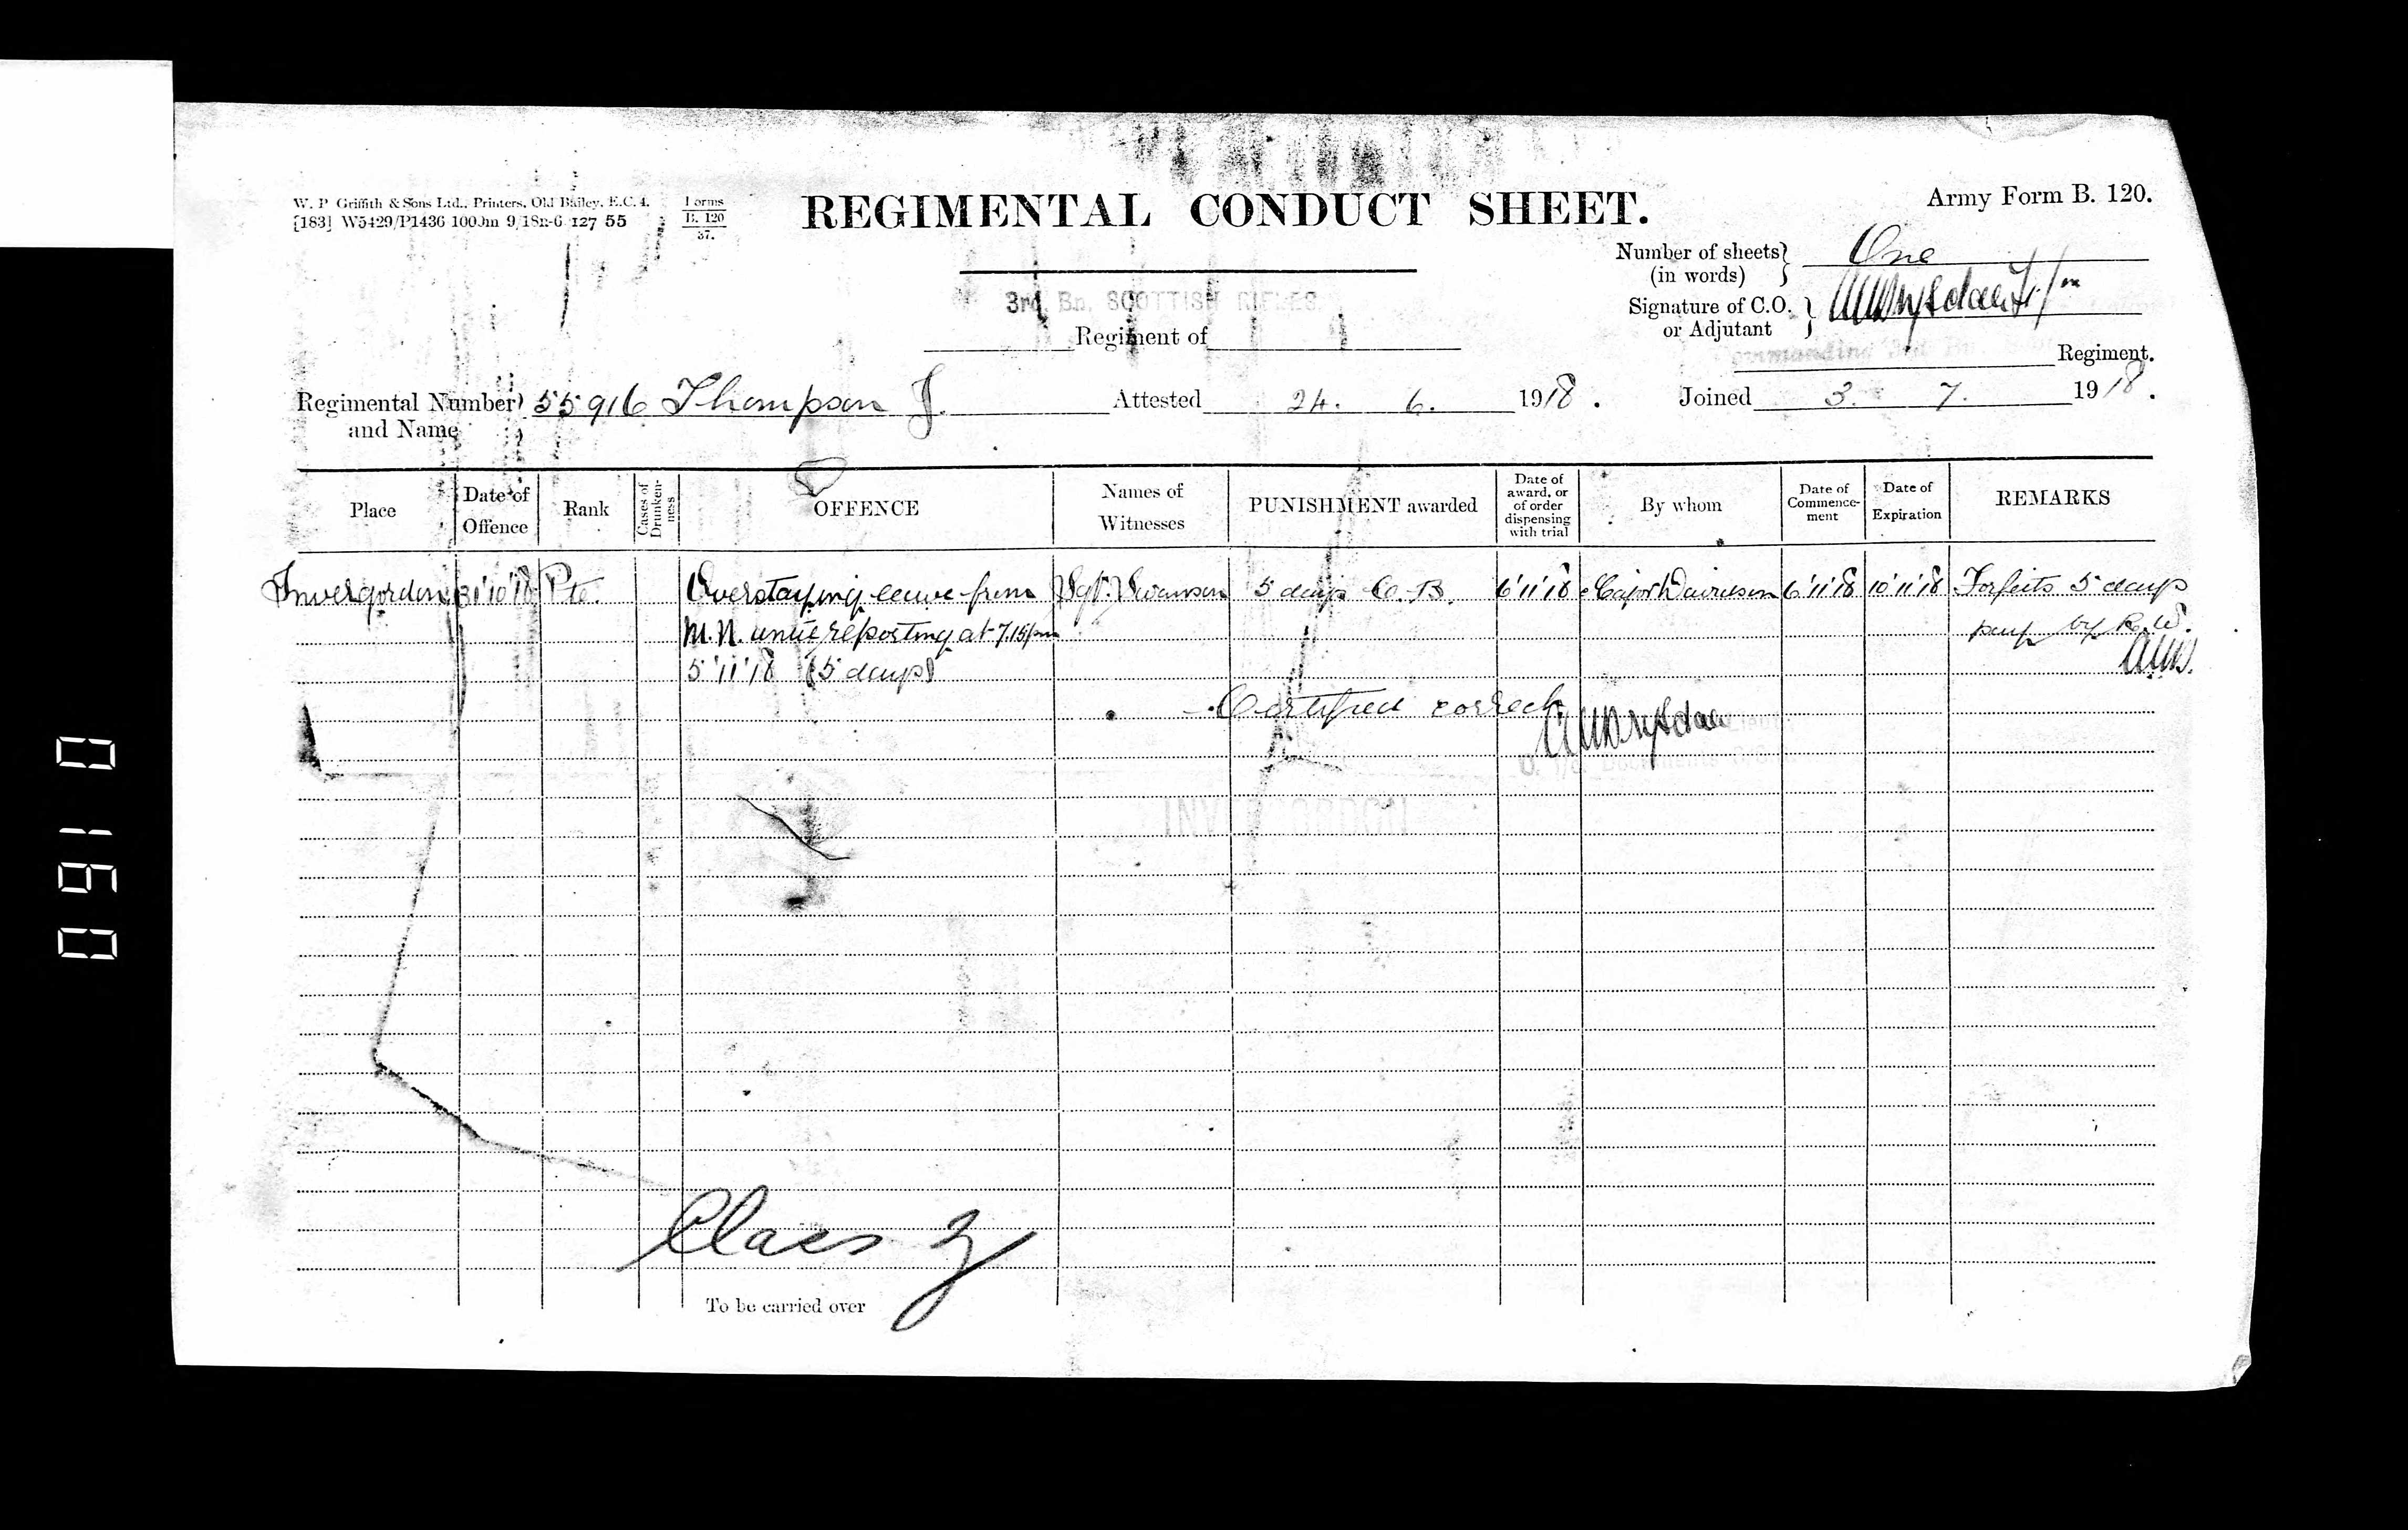 W. P Griffith & Sons Ltd., Printers, Old Bailey, E.C. 4.
[183] W5429/P1436 100,m 9/18 127 55
Forms
B. 120
37.
REGIMENTAL CONDUCT SHEET.
Army Form B. 120.
Number of sheets (in words) One
3rd Bn. SCOTTISH RIFLES
Signature of C.O. or Adjutant
Regiment of
Commanding 3rd Bn. Regiment.
Regimental Number and Name 55916 Thompson J. Attested 24. 6. 1918. Joined 3. 7. 1918.
Place
Date of Offence
Rank
Cases of Drunken-ness
OFFENCE
Names of Witnesses
PUNISHMENT awarded
Date of award, or of order dispensing with trial
By whom
Date of Commence-ment
Date of Expiration
REMARKS
Invergordon 31'10'18 Pte. Overstaying leave from Sgt. Swanson 5 days C.B. 6'11'18 6'11'18 10'11'18 Forfeits 5 days
M.N. until reporting at 7.15pm pay by R.W.
5'11'18 (5 days)
Certified correct
INVERGORDON
Class Z
To be carried over
0910